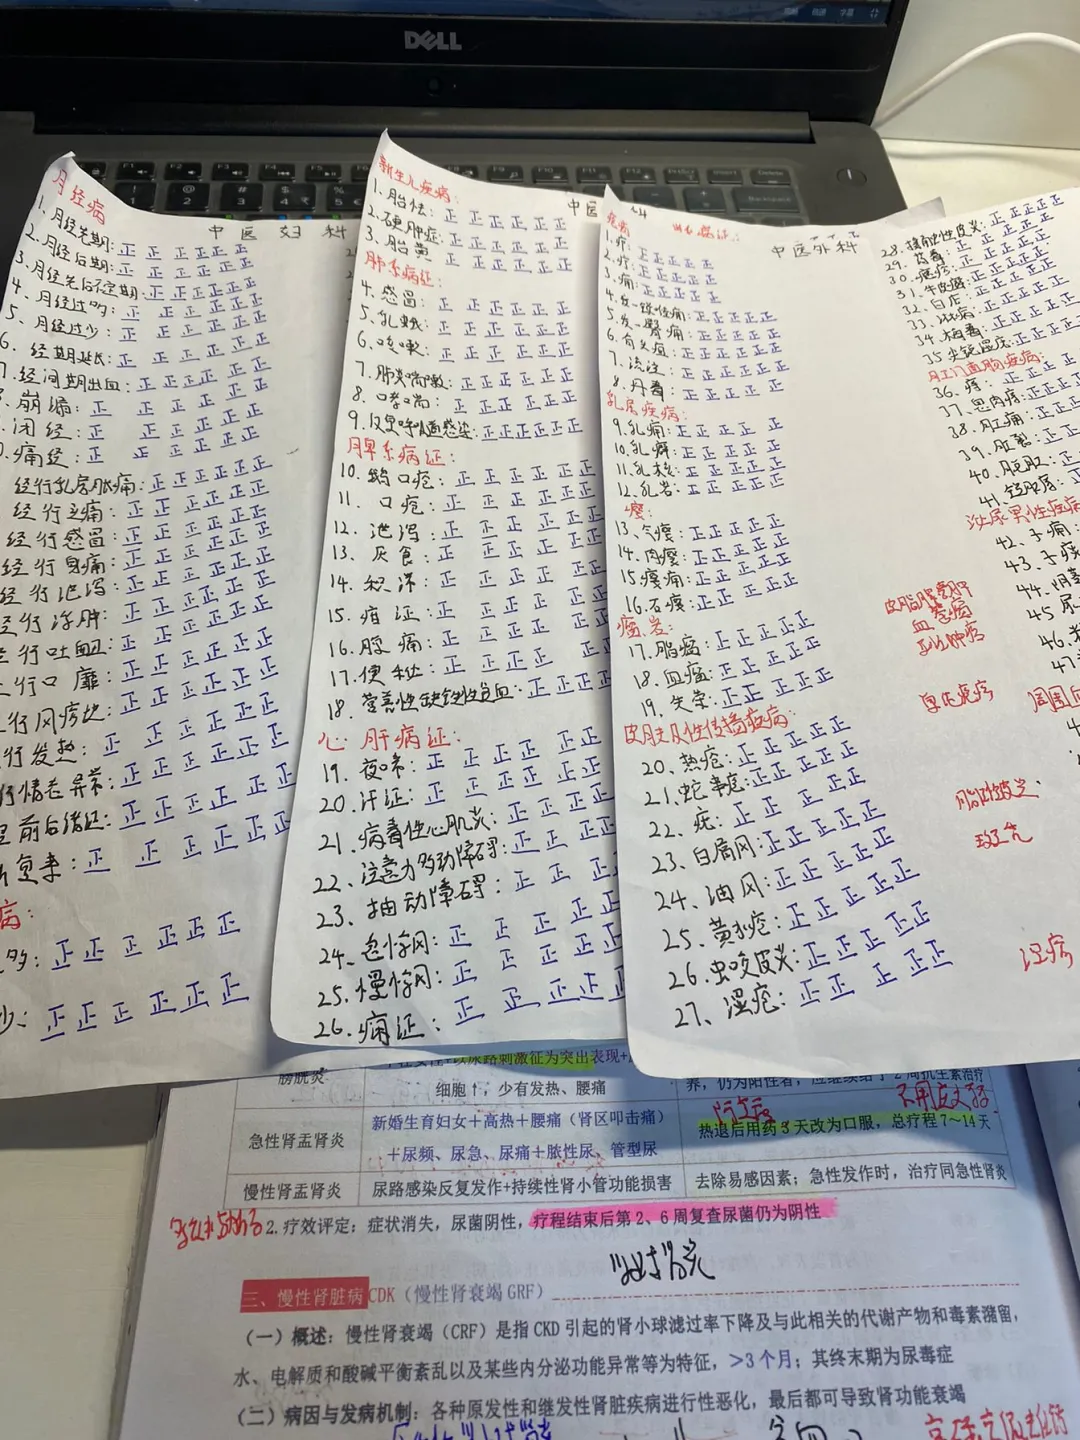 DELL
月经病
中医妇科
1、月经先期:正正正正正正
2、月经后期:正正正正正正
3、月经先后不定期:正正正正正正
4、月经过多:正正正正正正
5、月经过少:正正正正正正
6、经期延长:正正正正正正
经间期出血:正正正正正正
崩漏:正正正正正正
闭经:正正正正正正
痛经:正正正正正正
经行乳房胀痛:正正正正正正
经行头痛:正正正正正正
经行感冒:正正正正正正
经行身痛:正正正正正正
经行泄泻:正正正正正正
经行浮肿:正正正正正正
行吐衄:正正正正正正
行口糜:正正正正正正
行风疹块:正正正正正正
行发热:正正正正正正
行情志异常:正正正正正正
前后诸证:正正正正正正
复来:正正正正正正
病:
多:正正正正正正
少:正正正正正正
新生儿疾病:
1、胎怯:正正正正正正
2、硬肿症:正正正正正正
3、胎黄:正正正正正正
肺系病证:
4、感冒:正正正正正正
5、乳蛾:正正正正正正
6、咳嗽:正正正正正正
7、肺炎喘嗽:正正正正正正
8、哮喘:正正正正正正
9、反复呼吸道感染:正正正正正正
脾系病证:
10、鹅口疮:正正正正正正
11、口疮:正正正正正正
12、泄泻:正正正正正正
13、厌食:正正正正正正
14、积滞:正正正正正正
15、疳证:正正正正正正
16、腹痛:正正正正正正
17、便秘:正正正正正
18、营养性缺铁性贫血:正正正正正
心肝病证:
19、夜啼:正正正正正正
20、汗证:正正正正正正
21、病毒性心肌炎:正正正正正
22、注意力多动障碍:正正正正正
23、抽动障碍:正正正正
24、急惊风:正正正正正
25、慢惊风:正正正正正
26、痫证:正正正正
中医外科
疮疡
1、疖:正正正正正
2、疔:正正正正正
3、痈:正正正正正
5、发—臀痈:正正正正正
6、有头疽:正正正正正
7、流注:正正正正正
8、丹毒:正正正正正
乳房疾病:
9、乳痈:正正正正正
10、乳癖:正正正正正
11、乳核:正正正正正
12、乳岩:正正正正正
瘿:
13、气瘿:正正正正正
14、肉瘿:正正正正正
15、瘿痈:正正正正正
16、石瘿:正正正正正
瘤岩:
17、脂瘤:正正正正正
18、血瘤:正正正正正
19、失荣:正正正正正
皮肤及性传播疾病:
20、热疮:正正正正正
21、蛇串疮:正正正正正
22、疣:正正正正正
23、白屑风:正正正正正
24、油风:正正正正正
25、黄水疮:正正正正正
26、虫咬皮炎:正正正正正
27、湿疮:正正正正正
28、接触性皮炎:正正正正正
29、药毒:正正正正正
30、瘾疹:正正正正正
31、牛皮癣:正正正正正
32、白疕:正正正正正
33、淋病:正正正正正
34、梅毒:正正正正正
35、尖锐湿疣:正正正正正
肛门直肠疾病:
36、痔:正正正正
37、息肉痔:正正正正
38、肛痈:正正正
39、肛裂:正正
40、脱肛:正正
41、锁肛痔:正
泌尿男性疾病
42、子痈:
43、子痰
血管瘤
单纯疱疹
脂溢性皮炎
斑秃
湿疹
膀胱炎
以尿路刺激征为突出表现
细胞↑,少有发热、腰痛
养,仍为阳性者,应继续给予2周抗生素治疗
急性肾盂肾炎
新婚生育妇女+高热+腰痛(肾区叩击痛)
+尿频、尿急、尿痛+脓性尿、管型尿
热退后用药3天改为口服,总疗程7~14天
慢性肾盂肾炎
尿路感染反复发作+持续性肾小管功能损害
去除易感因素;急性发作时,治疗同急性肾炎
2.疗效评定:症状消失,尿菌阴性,疗程结束后第2、6周复查尿菌仍为阴性
三、慢性肾脏病CDK(慢性肾衰竭GRF)
(一)概述:慢性肾衰竭(CRF)是指CKD引起的肾小球滤过率下降及与此相关的代谢产物和毒素潴留,
水、电解质和酸碱平衡紊乱以及某些内分泌功能异常等为特征,>3个月;其终末期为尿毒症
(二)病因与发病机制:各种原发性和继发性肾脏疾病进行性恶化,最后都可导致肾功能衰竭